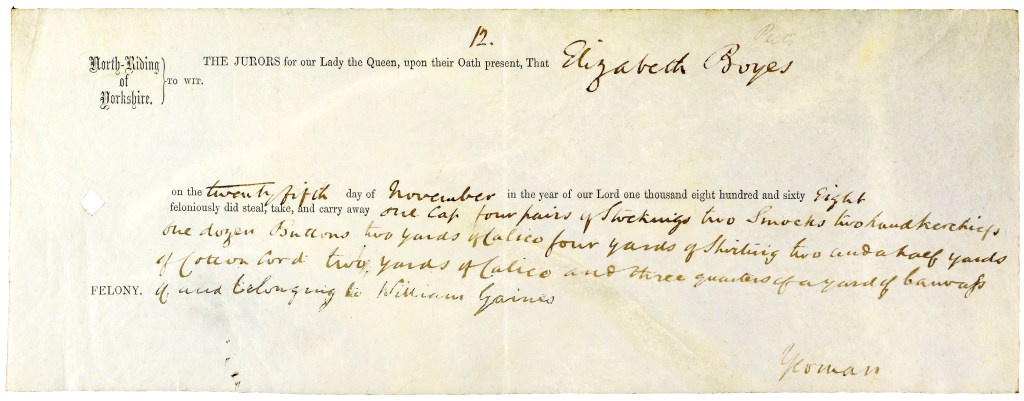 12.
North-Riding of Yorkshire. } TO WIT.
THE JURORS for our Lady the Queen, upon their Oath present, That Elizabeth Boyes
on the twenty fifth day of November in the year of our Lord one thousand eight hundred and sixty Eight
feloniously did steal, take, and carry away one Cap four pairs of Stockings two Smocks two handkerchiefs
one dozen Buttons two yards of Calico four yards of Shirting two and a half yards
of Cotton Cord two yards of Calico and three quarters of a yard of Canvass
FELONY. of and belonging to William Gaines
Yeoman